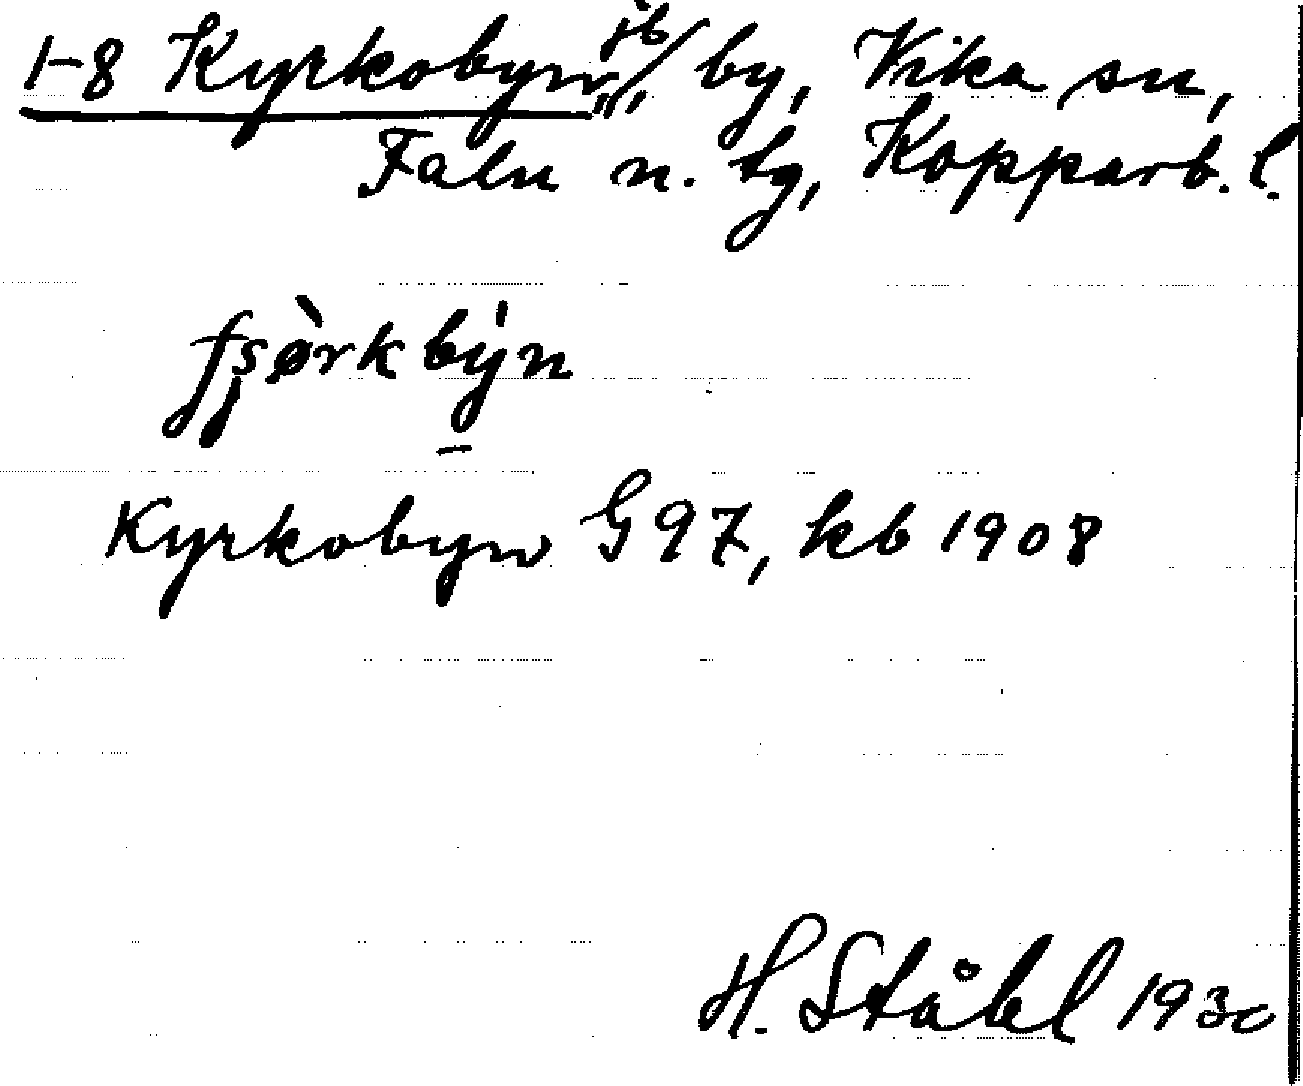 1-8 Kyrkobyn, jb, by, Vika sn,
Falu n. tg, Kopparb. l.
Kyrkobyn G 97, kb 1908
H. Ståhl 1930